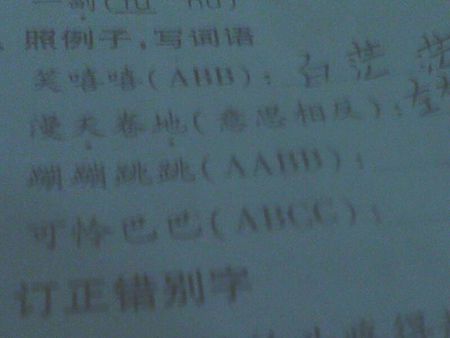 照例子,写词语
笑嘻嘻(ABB):白茫茫
漫天卷地(意思相反):左
蹦蹦跳跳(AABB):
可怜巴巴(ABCC):
订正错别字